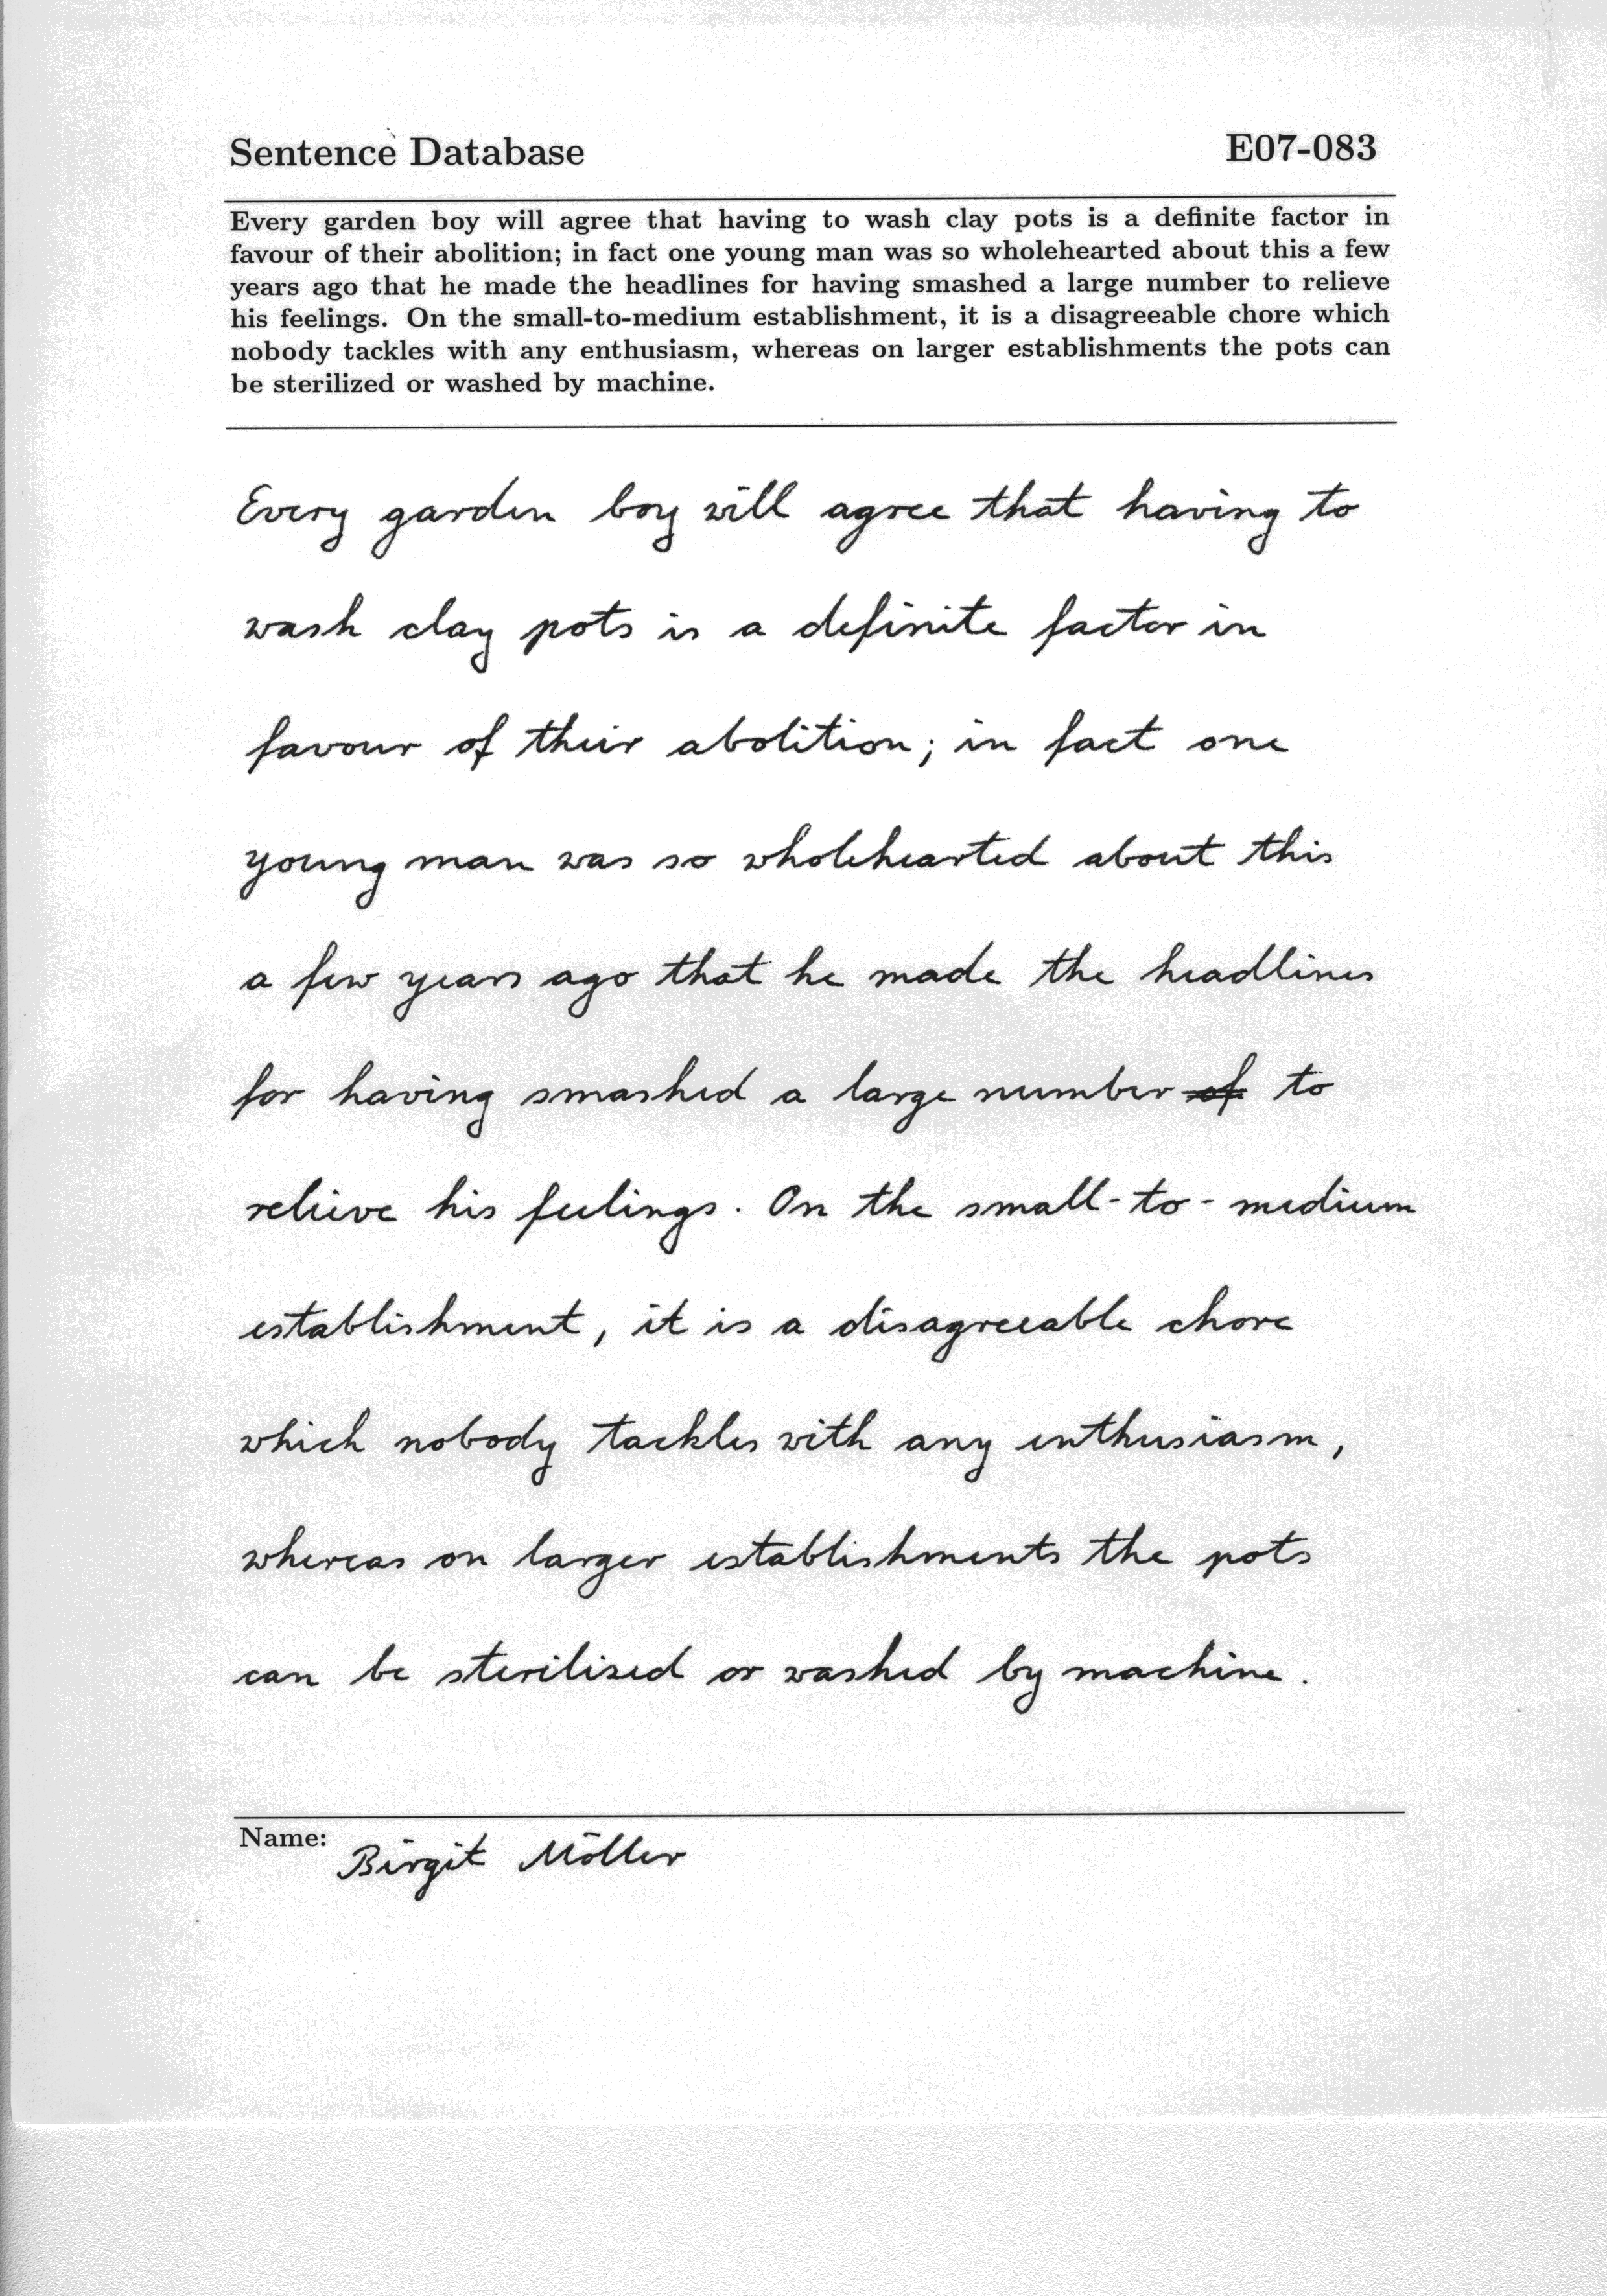 Sentence Database
E07-083
Every garden boy will agree that having to wash clay pots is a definite factor in
favour of their abolition; in fact one young man was so wholehearted about this a few
years ago that he made the headlines for having smashed a large number to relieve
his feelings. On the small-to-medium establishment, it is a disagreeable chore which
nobody tackles with any enthusiasm, whereas on larger establishments the pots can
be sterilized or washed by machine.
Every garden boy will agree that having to
wash clay pots is a definite factor in
favour of their abolition; in fact one
young man was so wholehearted about this
a few years ago that he made the headlines
for having smashed a large number of to
relieve his feelings. On the small-to-medium
establishment, it is a disagreeable chore
which nobody tackles with any enthusiasm,
whereas on larger establishments the pots
can be sterilized or washed by machine.
Name:
Birgit Möller